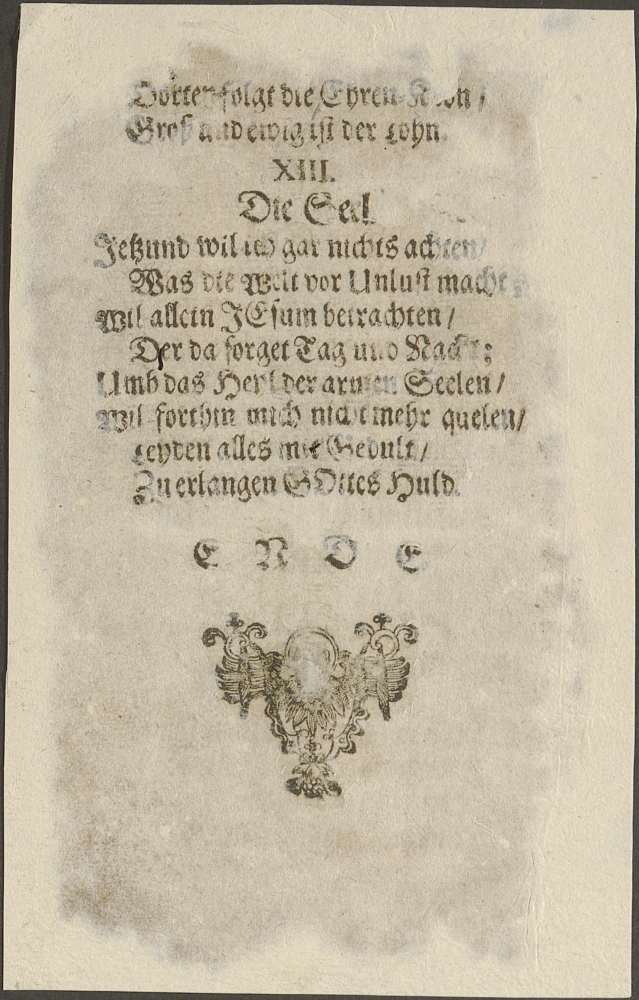 Dorten folgt die Ehren-Kron /
Groß und ewig ist der Lohn.
XIII.
Die Seel.
Jetzund wil ich gar nichts achten /
Was die Welt vor Unlust macht /
Wil allein JEsum betrachten /
Der da sorget Tag und Nacht:
Umb das Heyl der armen Seelen /
Wil forthin mich nicht mehr quelen /
Leyden alles mit Gedult /
Zu erlangen GOttes Huld.
E N D E